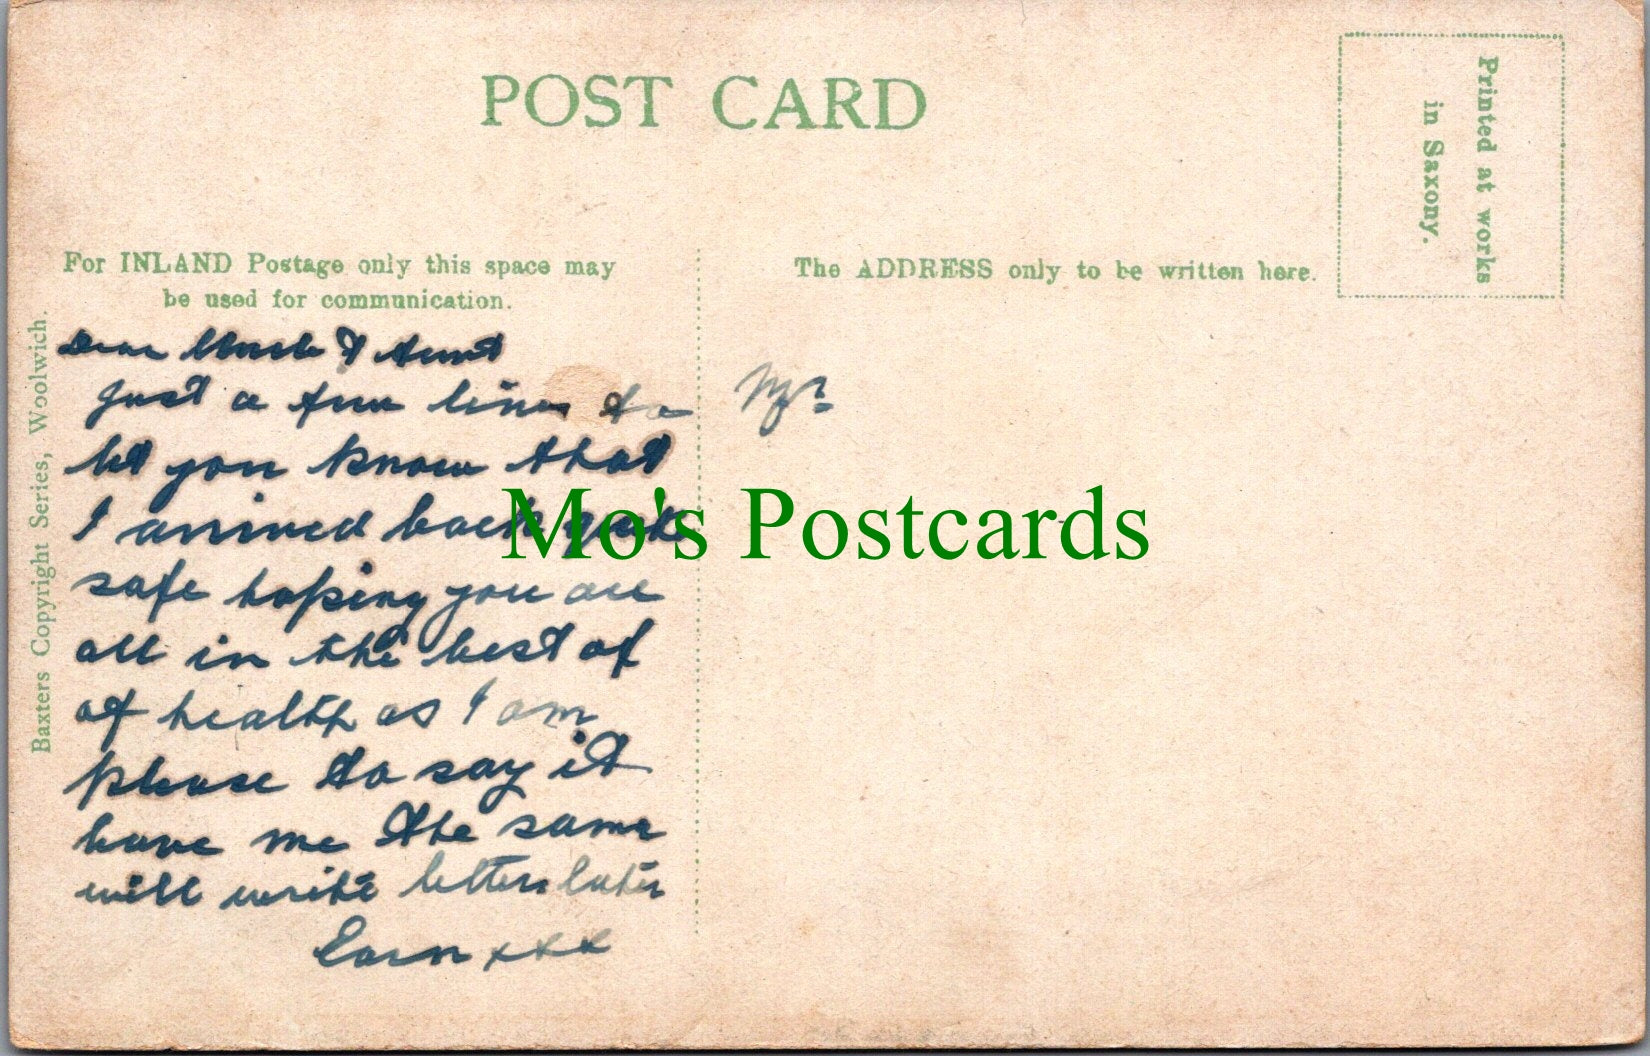 POST CARD
Printed at works
in Saxony.
For INLAND Postage only this space may
be used for communication.
The ADDRESS only to be written here.
Baxters Copyright Series, Woolwich.
Dear Uncle & Aunt
just a few lines to
let you know that
I arrived back quite
safe hoping you are
all in the best of
of health as I am
please to say it
leave me the same
will write letter later
xxx
Mr
Mo's Postcards